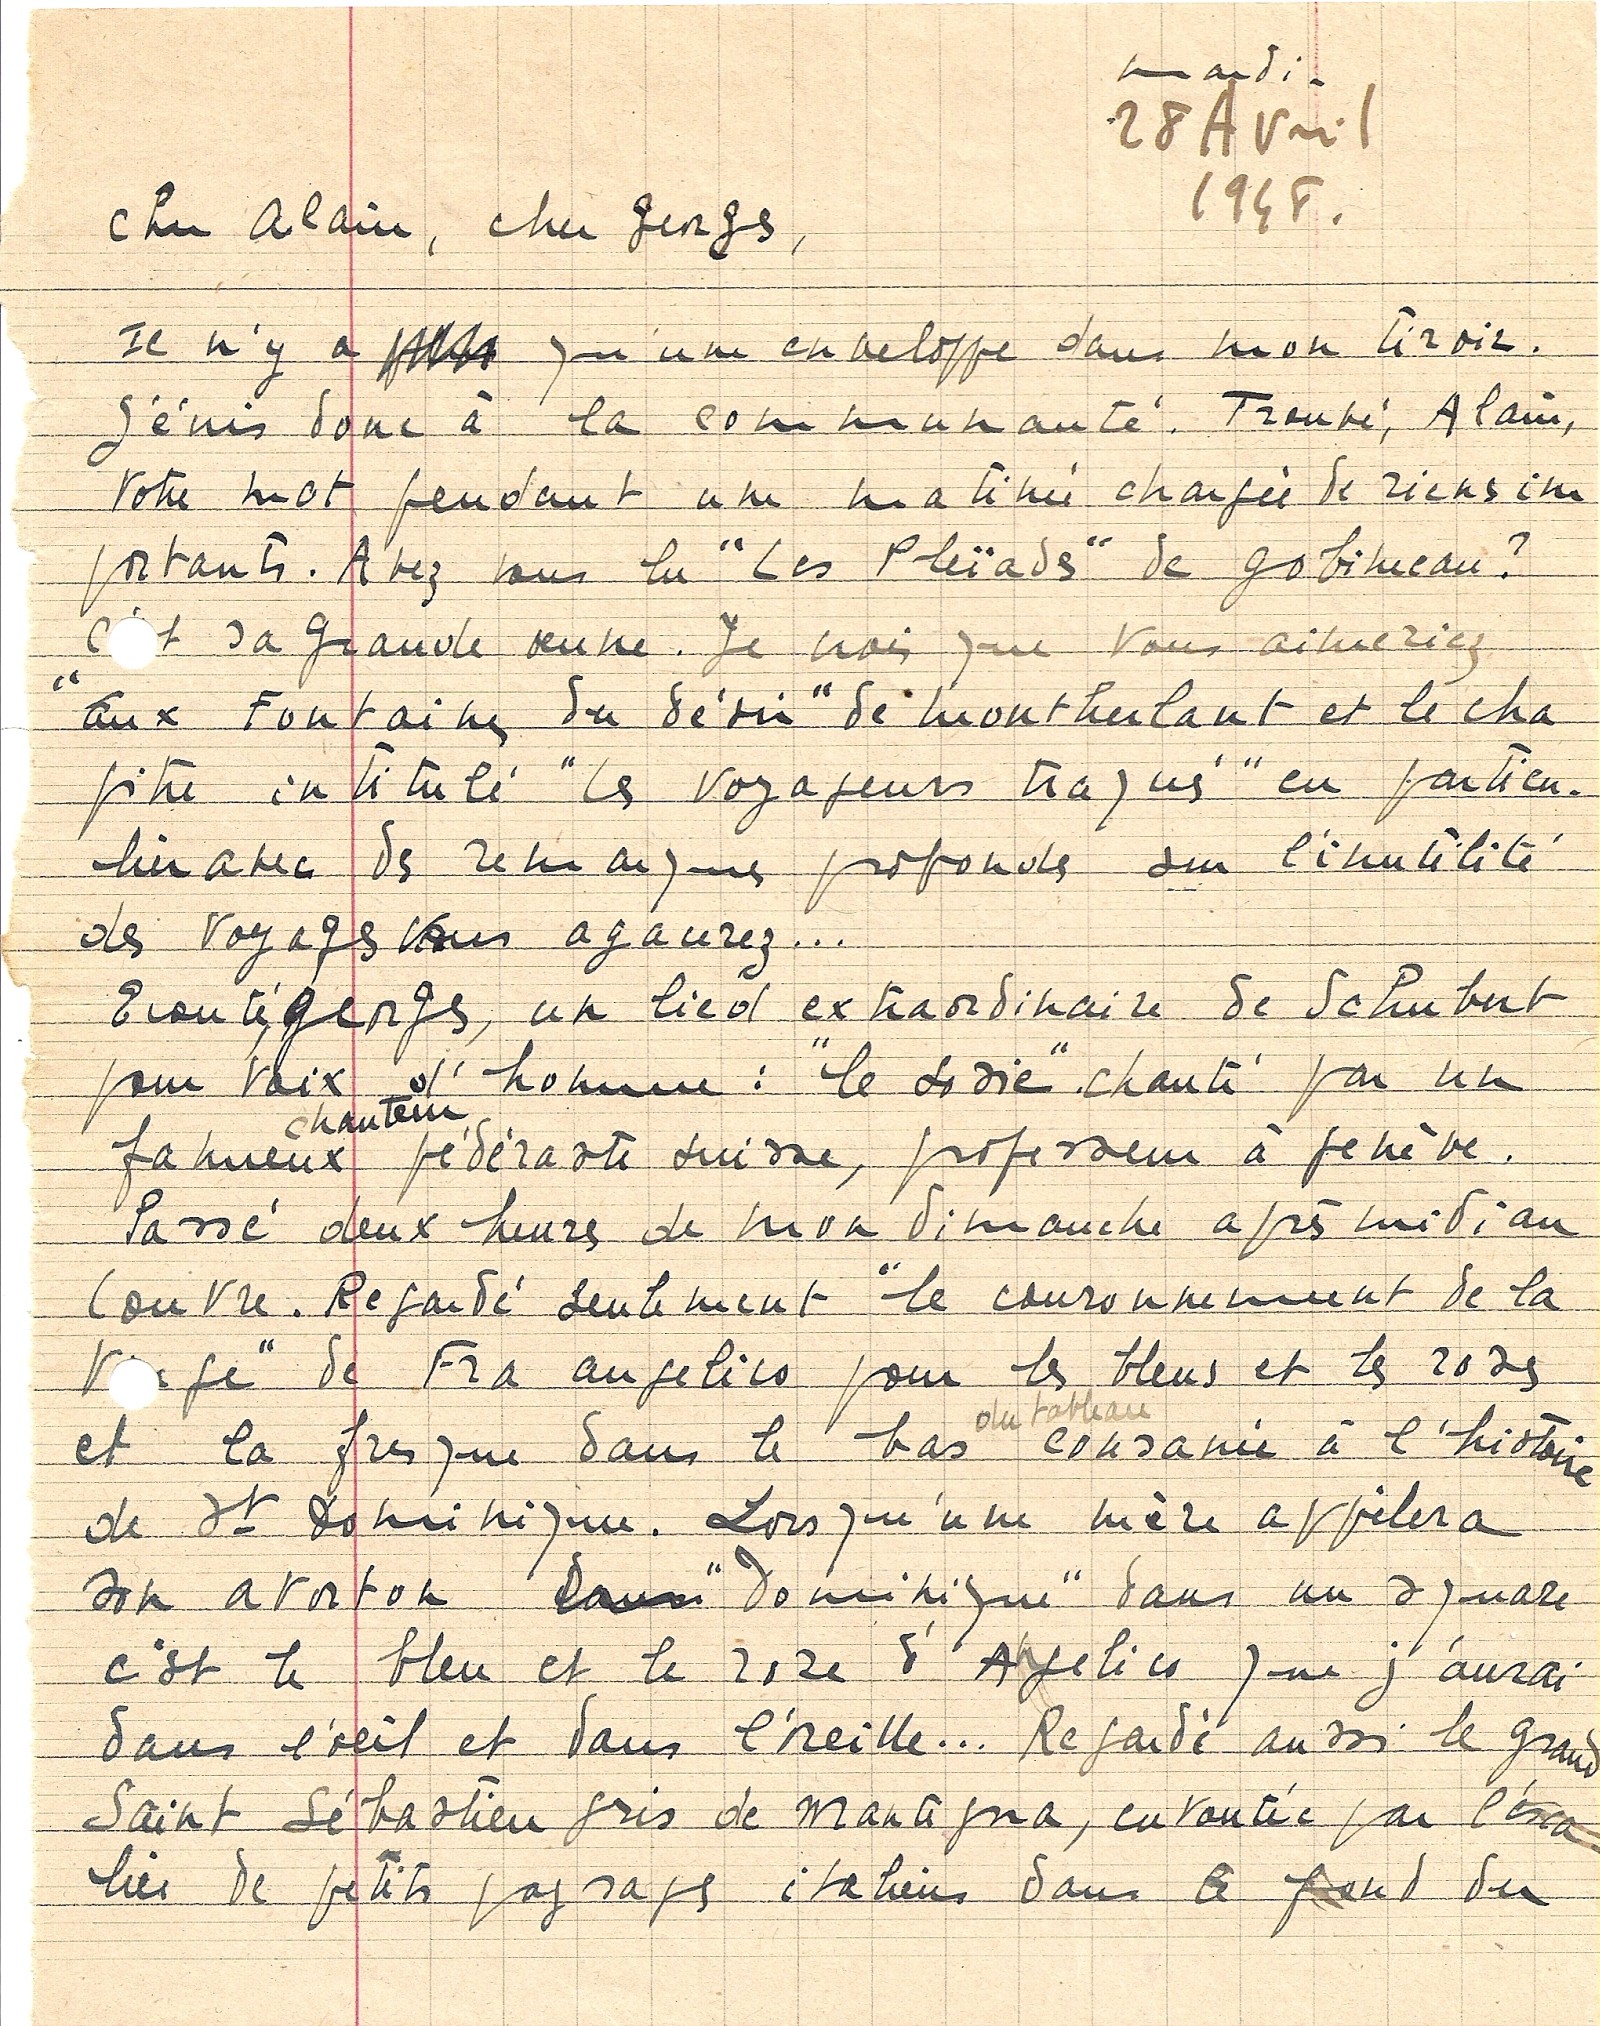 mardi.
28 Avril
1948.
cher Alain, cher georges,
Il n'y a qu'une enveloppe dans mon tiroir.
J'écris donc à la communauté. Trouvé, Alain,
votre mot pendant une matinée chargée de riens im
portants. Avez vous lu "Les Pleïades" de gobineau?
C'est sa grande œuvre. Je crois que vous aimeriez
"aux Fontaines du désir" de montherlant et le cha
pitre intitulé "les voyageurs traqués" en particu.
lier avec des remarques profondes sur l'inutilité
des voyages vous agaurez...
Ecouté, georges, un lied extraordinaire de Schubert
pour voix d'homme : "le sosie" chanté par un
fameux chanteur pédéraste suisse, professeur à genève.
Passé deux heures de mon dimanche après midi au
Louvre. Regardé seulement "le couronnement de la
Vierge" de Fra angelico pour les bleus et les roses
et la fresque dans le bas du tableau consacrée à l'histoire
de St Dominique. Lorsqu'une mère appelera
son avorton "Dominique" dans un square
c'est le bleu et le rose d'Angelico que j'aurai
dans l'œil et dans l'oreille... Regardé aussi le grand
Saint Sébastien gris de Mantegna, envoutée par l'esca
lier de petits paysages italiens dans le fond du